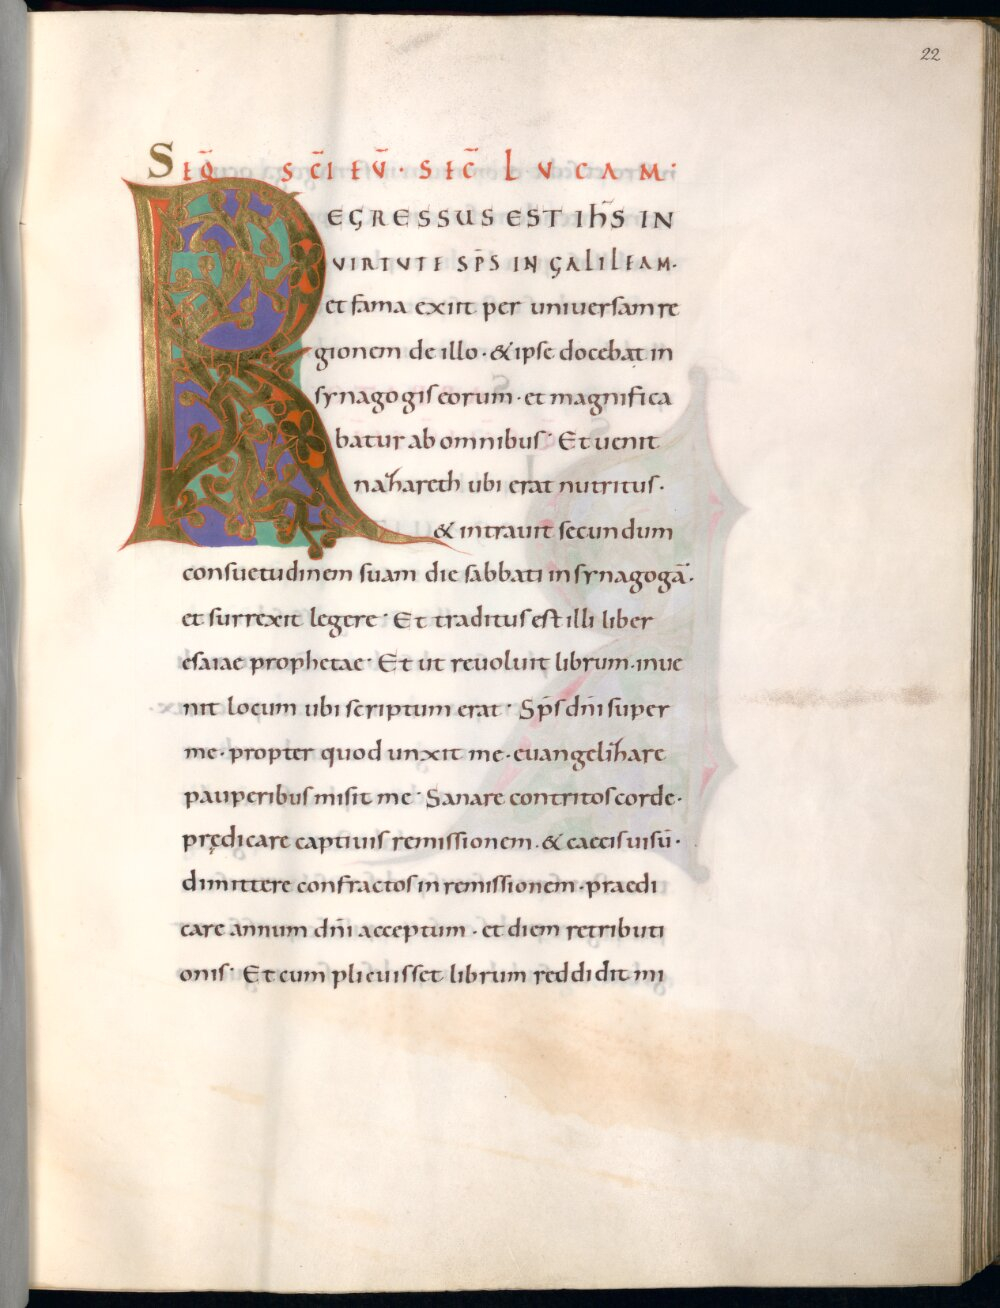 22
SEQ̄ SC̄I EV̄· SEC̄ LVCAM:
REGRESSUS EST IHS̄ IN
VIRTVTE SP̄S IN GALILEAM·
et fama exiit per uniuersam re
gionem de illo· & ipse docebat in
synagogis eorum· et magnifica
batur ab omnibus· Et uenit
nazareth ubi erat nutritus·
& intrauit secundum
consuetudinem suam die sabbati in synagogā·
et surrexit legere· Et traditus est illi liber
esaiae prophetae· Et ut reuoluit librum· inue
nit locum ubi scriptum erat· Sp̄s dn̄i super
me· propter quod unxit me· euangelizare
pauperibus misit me· Sanare contritos corde·
prędicare captiuis remissionem· & caecis uisū·
dimittere confractos in remissionem· praedi
care annum dn̄i acceptum· et diem retributi
onis· Et cum plicuisset librum reddidit mi